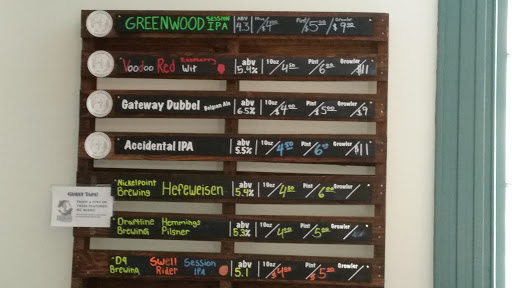 GREENWOOD SESSION IPA ABV 4.3 10oz $4 Pint $5.00 Growler $9.00
Voodoo Red Raspberry Wit abv 5.4% 10oz 4.50 Pint 6.00 Growler $11
Gateway Dubbel Belgian Ale abv 6.5% 10oz $4.00 Pint $5.00 Growler $9
Accidental IPA abv 5.5% 10oz 4.50 Pint 6.00 Growler $11
Nickelpoint Brewing Hefeweisen abv 5.4% 10oz 4.50 Pint 6.00 Growler
Draftline Brewing Hemmings Pilsner abv 5.3% 10oz 4.00 Pint 5.00 Growler
D9 Brewing Swell Rider Session IPA abv 5.1 10oz $4.00 Pint $5.00 Growler